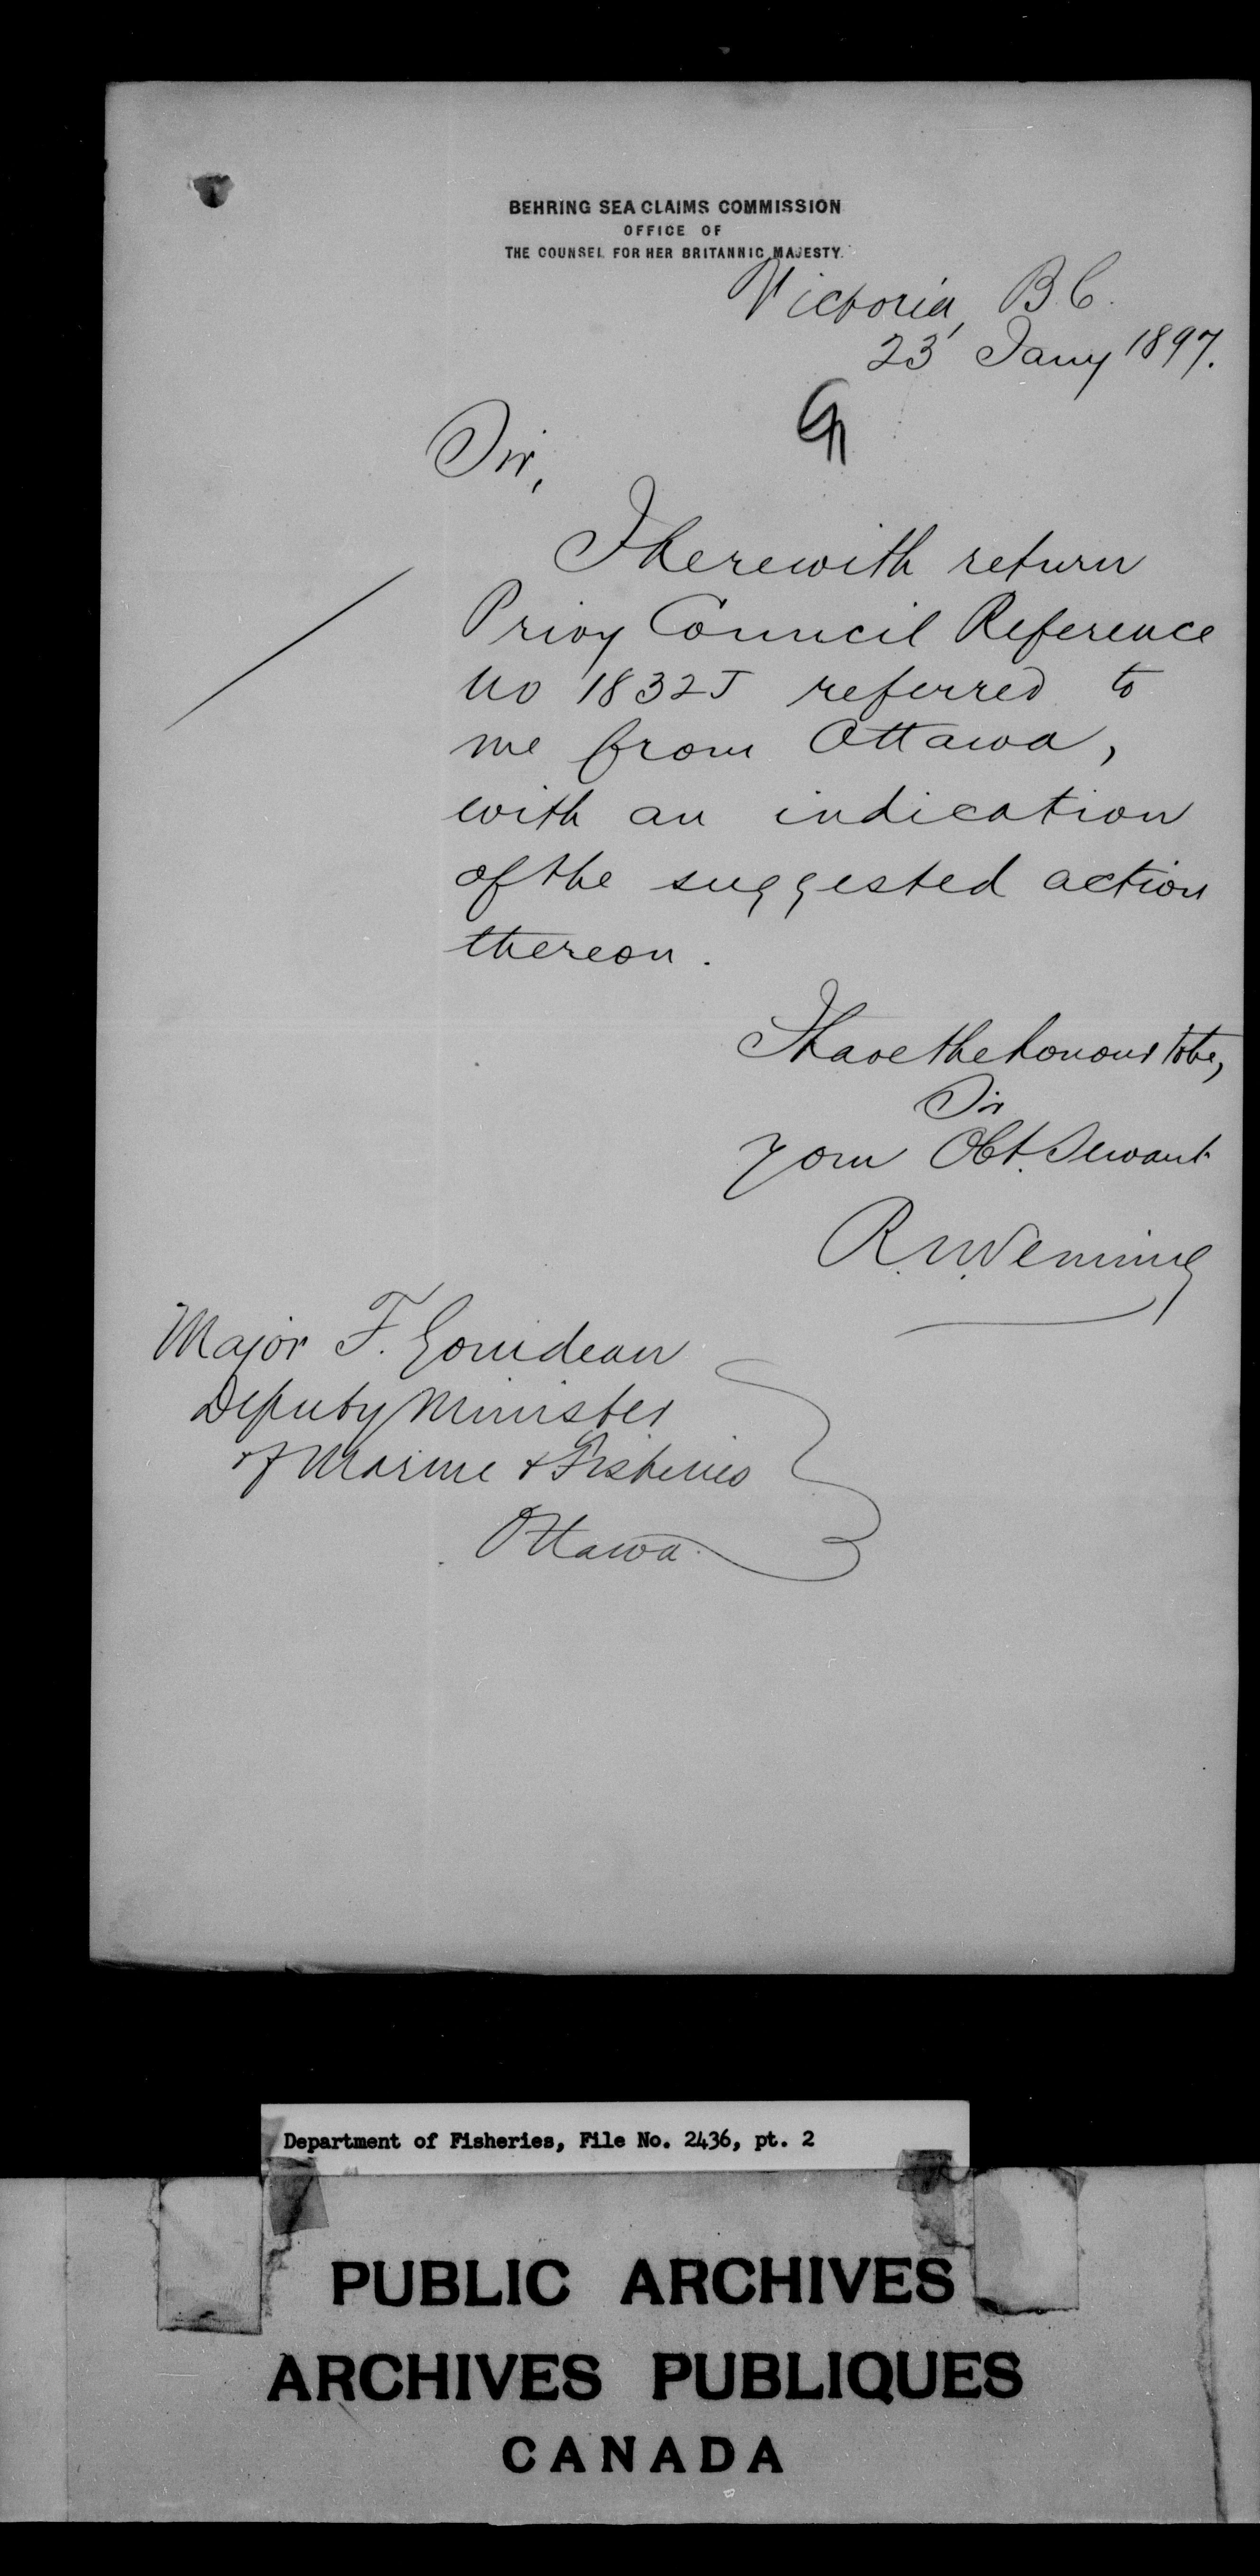 BEHRING SEA CLAIMS COMMISSION
OFFICE OF
THE COUNSEL FOR HER BRITANNIC MAJESTY.
Victoria, B.C.
23' Jany 1897.
Sir,
I herewith return
Privy Council Reference
No 1832J referred to
me from Ottawa,
with an indication
of the suggested action
thereon.
I have the honour to be,
Sir
Your Obt. Servant
R. N. Venning
Major F. Gourdeau
Deputy Minister
of Marine & Fisheries
Ottawa.
Department of Fisheries, File No. 2436, pt. 2
PUBLIC ARCHIVES
ARCHIVES PUBLIQUES
CANADA